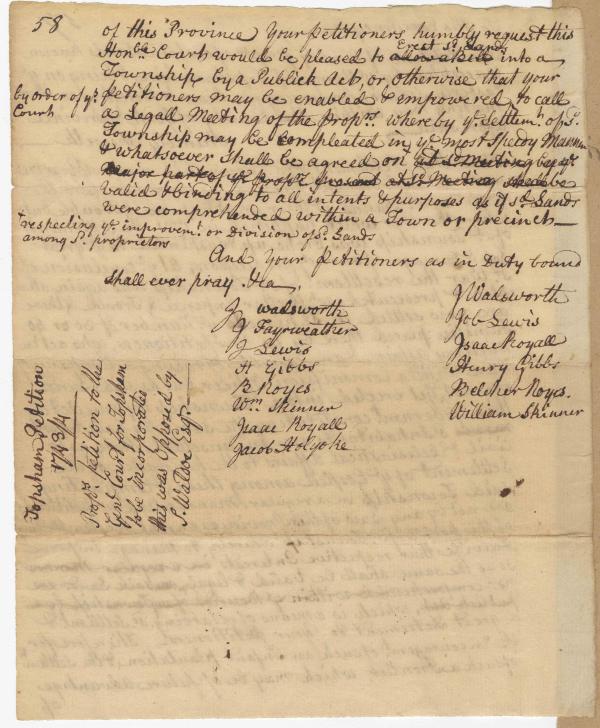 58
of this Province Your Petitioners humbly request this
Honble Court would be pleased to allow a Bill Erect sd. Lands into a
Township by a Publick Act, or, otherwise that your
by order of ye.
Court
Petitioners may be enabled & empowered to call
a Legall Meeting of the Proprs. whereby ye. Settlemt. of sd.
Township may be compleated in ye. most Speedy Manner
& whatsoever shall be agreed on at sd. Meeting by ye.
Major part of ye. Proprs. present at sd. Meeting shall be
valid & binding to all intents & purposes as if sd. Lands
were comprehended within a Town or precinct
respecting ye. improvemt. or Division of sd. Lands
among sd. proprietors
And Your Petitioners as in Duty bound
shall ever pray. &ca.
J Wadsworth
J Fayrweather
J Lewis
H Gibbs
B Noyes
Wm. Skinner
Isaac Royall
Jacob Holyoke
J Wadsworth
Job Lewis
Isaac Royall
Henry Gibbs
Belcher Noyes.
William Skinner
Topsham Petition
1743/4
Proprs. petition to the
Genl. Court for Topsham
to be incorporated
this was Opposed by
S. Waldo Esqr.